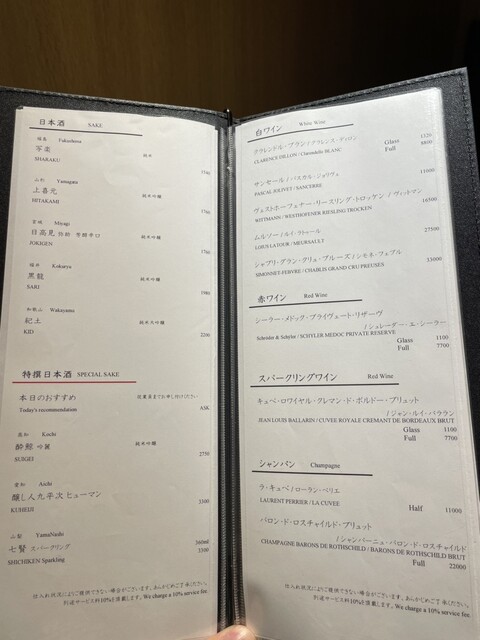 日本酒 SAKE
福島 Fukushima
写楽 純米
SHARAKU 1540
山形 Yamagata
上喜元 純米吟醸
HITAKAMI 1760
宮城 Miyagi
日高見 弥助 芳醇辛口 純米吟醸
JOKIGEN 1760
福井 Kokuryu
黒龍 純米吟醸
SARI 1980
和歌山 Wakayama
紀土 純米大吟醸
KID 2200
特撰日本酒 SPECIAL SAKE
本日のおすすめ 従業員までお申し付けください
Today's recommendation ASK
高知 Kochi
酔鯨 吟麗 純米吟醸
SUIGEI 2750
愛知 Aichi
醸し人九平次 ヒューマン
KUHEIJI 3300
山梨 YamaNashi
七賢 スパークリング 360ml
SHICHIKEN Sparkling 3300
仕入れ状況によりご提供できない場合がございます。あらかじめご了承ください。
別途サービス料10%を頂戴します。We charge a 10% service fee.
白ワイン White Wine
クラレンドル・ブラン / クラレンス・ディロン
CLARENCE DILLON / Clarendelle BLANC
Glass 1320
Full 8800
サンセール / パスカル・ジョリヴェ
PASCAL JOLIVET / SANCERRE 11000
ヴェストホーフェナー・リースリング・トロッケン / ヴィットマン
WITTMANN / WESTHOFENER RIESLING TROCKEN 16500
ムルソー / ルイ・ラトゥール
LOUIS LATOUR / MEURSAULT 27500
シャブリ・グラン・クリュ・プルーズ / シモネ・フェブル
SIMONNET-FEBVRE / CHABLIS GRAND CRU PREUSES 33000
赤ワイン Red Wine
シーラー・メドック・プライヴェート・リザーヴ
/ シュレーダー・エ・シーラー
Schröder & Schyler / SCHYLER MEDOC PRIVATE RESERVE
Glass 1100
Full 7700
スパークリングワイン Red Wine
キュベ・ロワイヤル・クレマン・ド・ボルドー・ブリュット
/ ジャン・ルイ・バララン
JEAN LOUIS BALLARIN / CUVEE ROYALE CREMANT DE BORDEAUX BRUT
Glass 1100
Full 7700
シャンパン Champagne
ラ・キュベ / ローラン・ペリエ
LAURENT PERRIER / LA CUVEE Half 11000
バロン・ド・ロスチャイルド・ブリュット
/ シャンパーニュ・バロン・ド・ロスチャイルド
CHAMPAGNE BARONS DE ROTHSCHILD / BARONS DE ROTHSCHILD BRUT
Full 22000